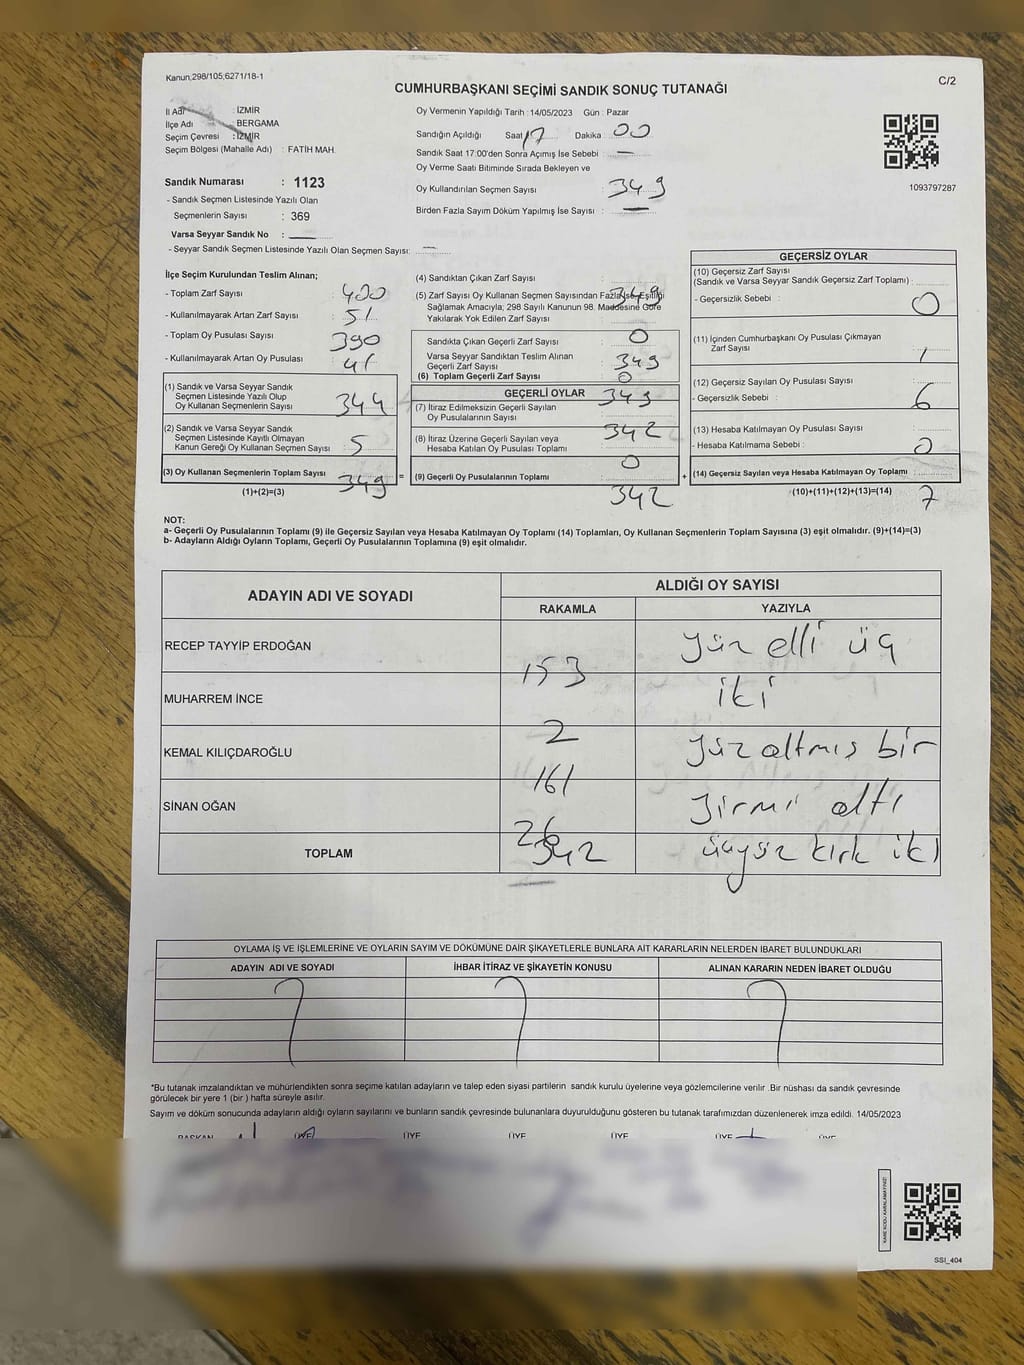 Kanun;298/105;6271/18-1
C/2
CUMHURBAŞKANI SEÇİMİ SANDIK SONUÇ TUTANAĞI
İl Adı : İZMİR
İlçe Adı : BERGAMA
Seçim Çevresi : İZMİR
Seçim Bölgesi (Mahalle Adı) : FATİH MAH.
Sandık Numarası : 1123
- Sandık Seçmen Listesinde Yazılı Olan
Seçmenlerin Sayısı : 369
Varsa Seyyar Sandık No :
- Seyyar Sandık Seçmen Listesinde Yazılı Olan Seçmen Sayısı:
Oy Vermenin Yapıldığı Tarih : 14/05/2023 Gün : Pazar
Sandığın Açıldığı Saat 17 Dakika 00
Sandık Saat 17:00'den Sonra Açımış İse Sebebi : —
Oy Verme Saati Bitiminde Sırada Bekleyen ve
Oy Kullandırılan Seçmen Sayısı : 349
Birden Fazla Sayım Döküm Yapılmış İse Sayısı : —
1093797287
İlçe Seçim Kurulundan Teslim Alınan;
- Toplam Zarf Sayısı : 400
- Kullanılmayarak Artan Zarf Sayısı : 51
- Toplam Oy Pusulası Sayısı : 390
- Kullanılmayarak Artan Oy Pusulası : 41
(1) Sandık ve Varsa Seyyar Sandık
Seçmen Listesinde Yazılı Olup
Oy Kullanan Seçmenlerin Sayısı : 344
(2) Sandık ve Varsa Seyyar Sandık
Seçmen Listesinde Kayıtlı Olmayan
Kanun Gereği Oy Kullanan Seçmen Sayısı : 5
(3) Oy Kullanan Seçmenlerin Toplam Sayısı : 349 =
(1)+(2)=(3)
(4) Sandıktan Çıkan Zarf Sayısı :
349
(5) Zarf Sayısı Oy Kullanan Seçmen Sayısından Fazla İse, Eşitliği
Sağlamak Amacıyla, 298 Sayılı Kanunun 98. Maddesine Göre
Yakılarak Yok Edilen Zarf Sayısı :
0
Sandıkta Çıkan Geçerli Zarf Sayısı :
Varsa Seyyar Sandıktan Teslim Alınan 349
Geçerli Zarf Sayısı :
(6) Toplam Geçerli Zarf Sayısı : 0
GEÇERLİ OYLAR 349
(7) İtiraz Edilmeksizin Geçerli Sayılan
Oy Pusulalarının Sayısı :
342
(8) İtiraz Üzerine Geçerli Sayılan veya
Hesaba Katılan Oy Pusulası Toplamı :
0
(9) Geçerli Oy Pusulalarının Toplamı : +
342
GEÇERSİZ OYLAR
(10) Geçersiz Zarf Sayısı
(Sandık ve Varsa Seyyar Sandık Geçersiz Zarf Toplamı) :
- Geçersizlik Sebebi : 0
(11) İçinden Cumhurbaşkanı Oy Pusulası Çıkmayan
Zarf Sayısı : 1
(12) Geçersiz Sayılan Oy Pusulası Sayısı :
- Geçersizlik Sebebi : 6
(13) Hesaba Katılmayan Oy Pusulası Sayısı :
- Hesaba Katılmama Sebebi : 0
(14) Geçersiz Sayılan veya Hesaba Katılmayan Oy Toplamı :
(10)+(11)+(12)+(13)=(14) 7
NOT:
a- Geçerli Oy Pusulalarının Toplamı (9) ile Geçersiz Sayılan veya Hesaba Katılmayan Oy Toplamı (14) Toplamları, Oy Kullanan Seçmenlerin Toplam Sayısına (3) eşit olmalıdır. (9)+(14)=(3)
b- Adayların Aldığı Oyların Toplamı, Geçerli Oy Pusulalarının Toplamına (9) eşit olmalıdır.
ADAYIN ADI VE SOYADI ALDIĞI OY SAYISI
RAKAMLA YAZIYLA
RECEP TAYYİP ERDOĞAN 153 yüz elli üç
MUHARREM İNCE 2 iki
KEMAL KILIÇDAROĞLU 161 yüz altmış bir
SİNAN OĞAN 26 yirmi altı
TOPLAM 342 üçyüz kırk iki
OYLAMA İŞ VE İŞLEMLERİNE VE OYLARIN SAYIM VE DÖKÜMÜNE DAİR ŞİKAYETLERLE BUNLARA AİT KARARLARIN NELERDEN İBARET BULUNDUKLARI
ADAYIN ADI VE SOYADI İHBAR İTİRAZ VE ŞİKAYETİN KONUSU ALINAN KARARIN NEDEN İBARET OLDUĞU
*Bu tutanak imzalandıktan ve mühürlendikten sonra seçime katılan adayların ve talep eden siyasi partilerin sandık kurulu üyelerine veya gözlemcilerine verilir .Bir nüshası da sandık çevresinde
görülecek bir yere 1 (bir ) hafta süreyle asılır.
Sayım ve döküm sonucunda adayların aldığı oyların sayılarını ve bunların sandık çevresinde bulunanlara duyurulduğunu gösteren bu tutanak tarafımızdan düzenlenerek imza edildi. 14/05/2023
BAŞKAN ÜYE ÜYE ÜYE ÜYE ÜYE ÜYE
KARE KODU KARALAMAYINIZ!
SSI_404